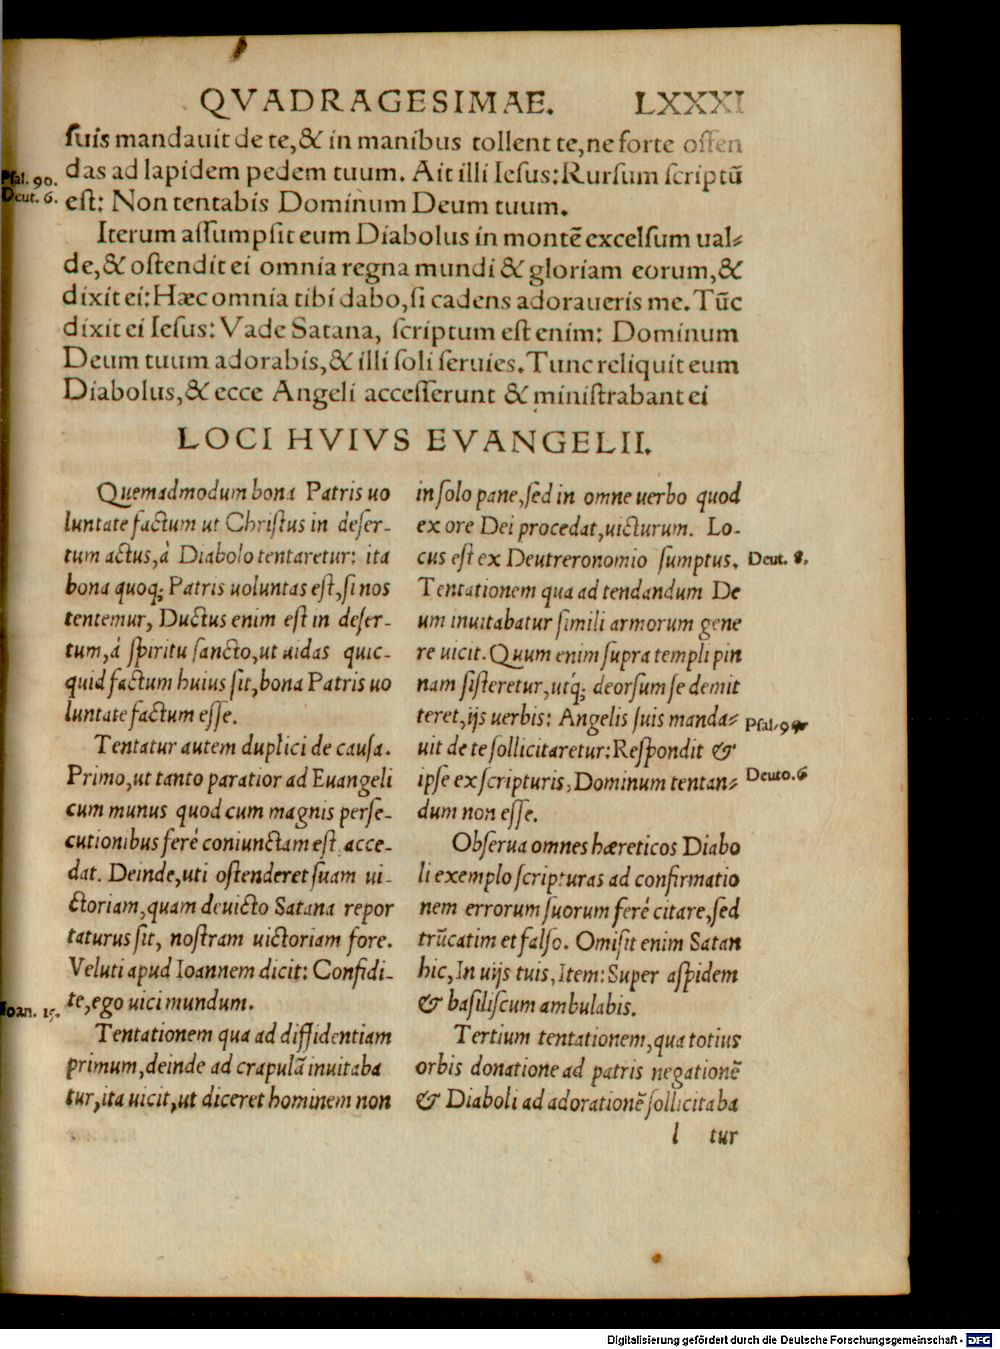 QVADRAGESIMAE. LXXXI
suis mandauit de te,& in manibus tollent te,ne forte offen
Psal. 90. das ad lapidem pedem tuum. Ait illi Iesus:Rursum scriptū
Deut. 6. est: Non tentabis Dominum Deum tuum.
Iterum assumpsit eum Diabolus in montē excelsum ual=
de,& ostendit ei omnia regna mundi & gloriam eorum,&
dixit ei:Hæc omnia tibi dabo,si cadens adoraueris me. Tūc
dixit ei Iesus: Vade Satana, scriptum est enim: Dominum
Deum tuum adorabis,& illi soli seruies. Tunc reliquit eum
Diabolus,& ecce Angeli accesserunt & ministrabant ei
LOCI HVIVS EVANGELII.
Quemadmodum bona Patris uo
luntate factum ut Christus in deser-
tum actus,à Diabolo tentaretur: ita
bona quoq; Patris uoluntas est,si nos
tentemur, Ductus enim est in deser-
tum,á spiritu sancto,ut uidas quic-
quid factum huius sit,bona Patris uo
luntate factum esse.
Tentatur autem duplici de causa.
Primo,ut tanto paratior ad Euangeli
cum munus quod cum magnis perse-
cutionibus feré coniunctam est acce-
dat. Deinde,uti ostenderet suam ui-
ctoriam,quam deuicto Satana repor
taturus sit, nostram uictoriam fore.
Veluti apud Ioannem dicit: Confidi-
Ioan. 15. te,ego uici mundum.
Tentationem qua ad diffidentiam
primum,deinde ad crapulā inuitaba
tur,ita uicit,ut diceret hominem non
in solo pane,sed in omne uerbo quod
ex ore Dei procedat,uicturum. Lo-
cus est ex Deutreronomio sumptus. Deut. 8.
Tentationem qua ad tendandum De
um inuitabatur simili armorum gene
re uicit. Quum enim supra templi pin
nam sisteretur,utq; deorsum se demit
teret,ijs uerbis: Angelis suis manda= Psal.
uit de te sollicitaretur:Respondit &
ipse ex scripturis, Dominum tentan= Deuto.6
dum non esse.
Obserua omnes hæreticos Diabo
li exemplo scripturas ad confirmatio
nem errorum suorum feré citare,sed
trūcatim et falso. Omisit enim Satan
hic,In uijs tuis, Item: Super aspidem
& basiliscum ambulabis.
Tertium tentationem,qua totius
orbis donatione ad patris negationē
& Diaboli ad adorationē sollicitaba
l tur
Digitalisierung gefördert durch die Deutsche Forschungsgemeinschaft - DFG